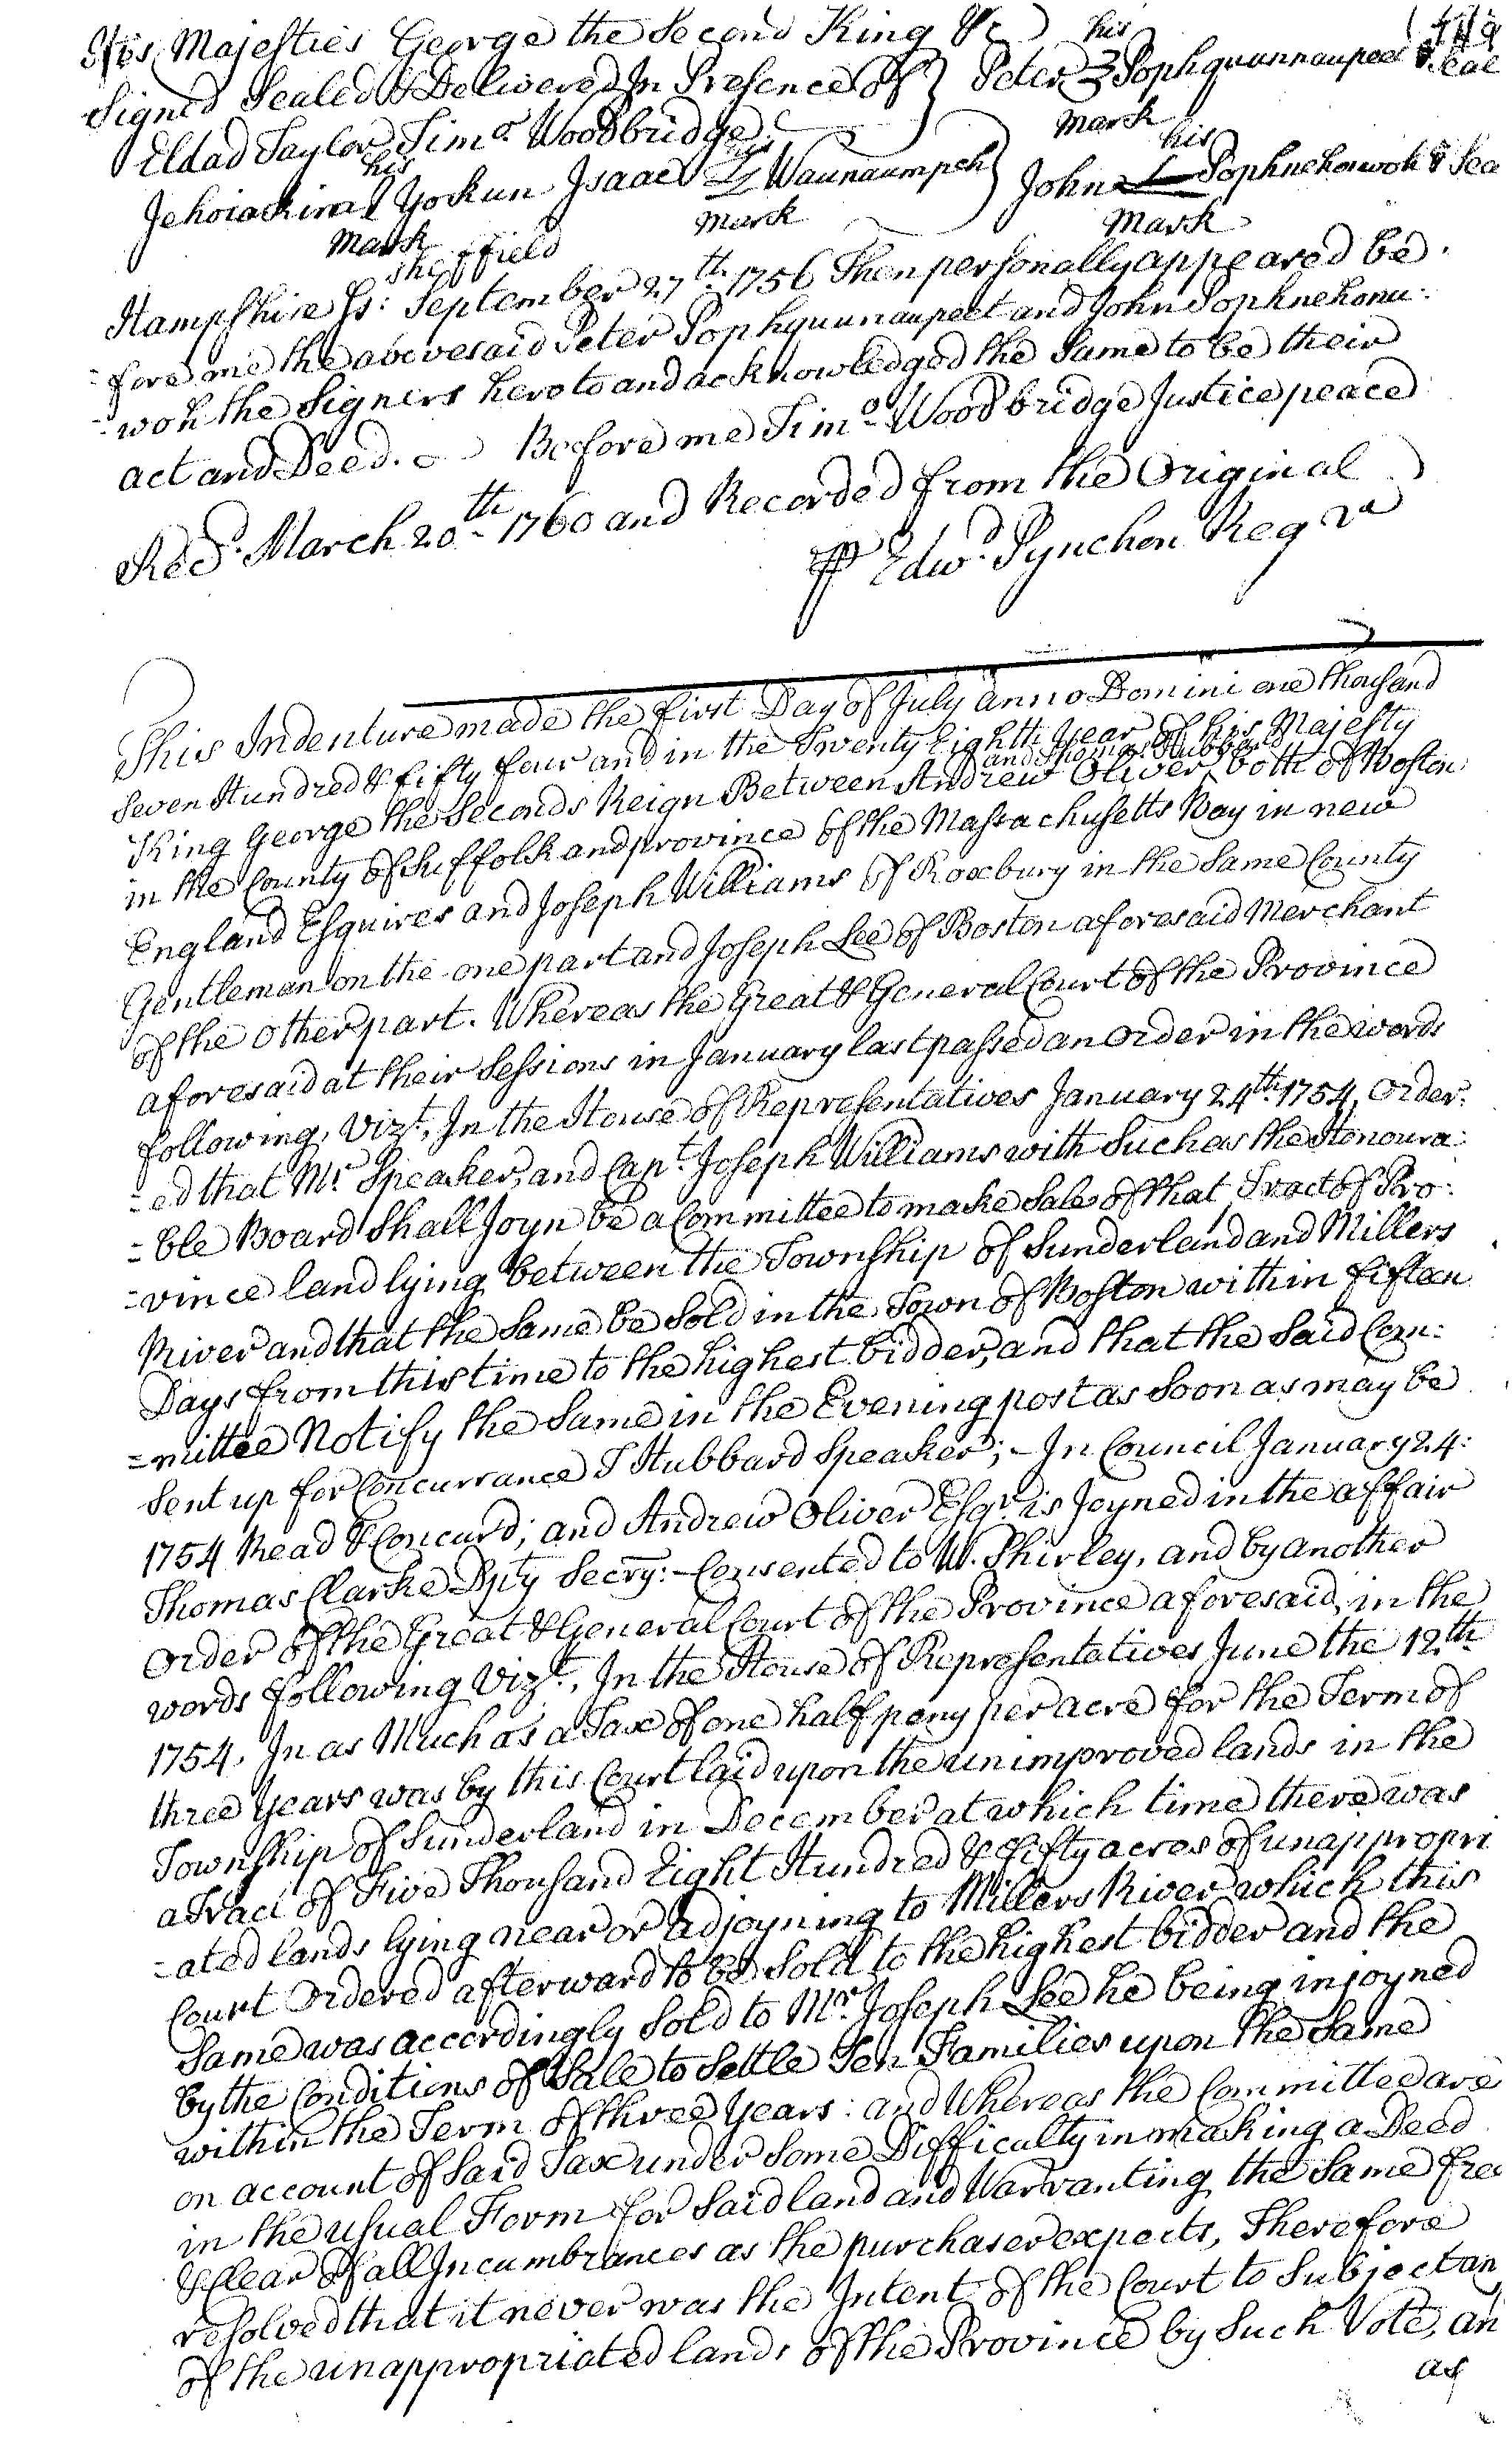 His Majesties George the Second King &c his
Signed Sealed & Delivered In Presence of } Peter 3 Pophquunnaupeet & Seal
Eldad Taylor Timo Woodbridge mark
his his his
Jehoiackim Yokun Isaac Waunaumpeh } John Pophnehonwoh & Sea
mark mark mark
Sheffield
Hampshire Ss: September 27th 1756 Then personally appeared be
=fore me the abovesaid Peter Pophquunnaupeet and John Pophnehonu=
=woh the Signers hereto and acknowledged the Same to be their
act and Deed. Before me Timo Woodbridge Justice peace
Recd. March 20th 1760 and Recorded from the Original
⅌ Edwd. Pynchon Regr
This Indenture made the first Day of July anno Domini one thousand
Seven Hundred & fifty four and in the Twenty Eighth Year of his Majesty
and Thomas Hubbard
King George the Seconds Reign Between Andrew Oliver ^ both of Boston
in the County of Suffolk and province of the Massachusetts Bay in new
England Esquires and Joseph Williams of Roxbury in the Same County
Gentleman on the one part and Joseph Lee of Boston aforesaid Merchant
of the other part. Whereas the Great & General Court of the Province
aforesaid at their Sessions in January last passed an Order in the words
following, Vizt, In the House of Representatives January 24th 1754, Order=
=ed that Mr Speaker, and Capt. Joseph Williams with Such as the Honoura=
=ble Board Shall Joyn be a Committee to make Sale of that Tract of Pro=
=vince land lying between the Township of Sunderland and Millers
River and that the Same be Sold in the Town of Boston within fifteen
Days from this time to the highest bidder, and that the Said Com=
=mittee Notify the Same in the Evening post as Soon as may be
Sent up for Concurrance T Hubbard Speaker; - In Council January 24:
1754 Read & Concur'd; and Andrew Oliver Esqr is Joyned in the affair
Thomas Clarke Dpty Secry: - Consented to W. Shirley, and by another
Order of the Great & General Court of the Province aforesaid, in the
words following Vizt, In the House of Representatives June the 12th
1754, In as Much as a Tax of one half peny per acre for the Term of
three Years was by this Court laid upon the unimproved lands in the
Township of Sunderland in December at which time there was
a Tract of Five Thousand Eight Hundred & fifty acres of unappropri
=ated lands lying near or adjoyning to Millers River which this
Court Ordered afterward to be Sold to the highest bidder and the
Same was accordingly Sold to Mr Joseph Lee he being injoyned
by the Conditions of Sale to Settle Ten Families upon the Same
within the Term of three Years: and Whereas the Committee are
on account of Said Tax under Some Difficulty in making a Deed
in the usual Form for Said land and Warranting the Same free
& Clear of all Incumbrances as the purchaser expects, Therefore
resolved that it never was the Intent of the Court to Subject an
of the unappropriated lands of the Province by Such Vote, an